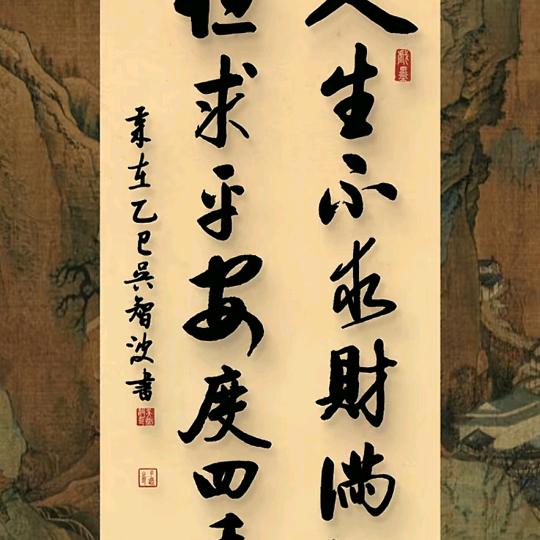 人生不求財滿
但求平安度四
歲在乙巳吳智波書